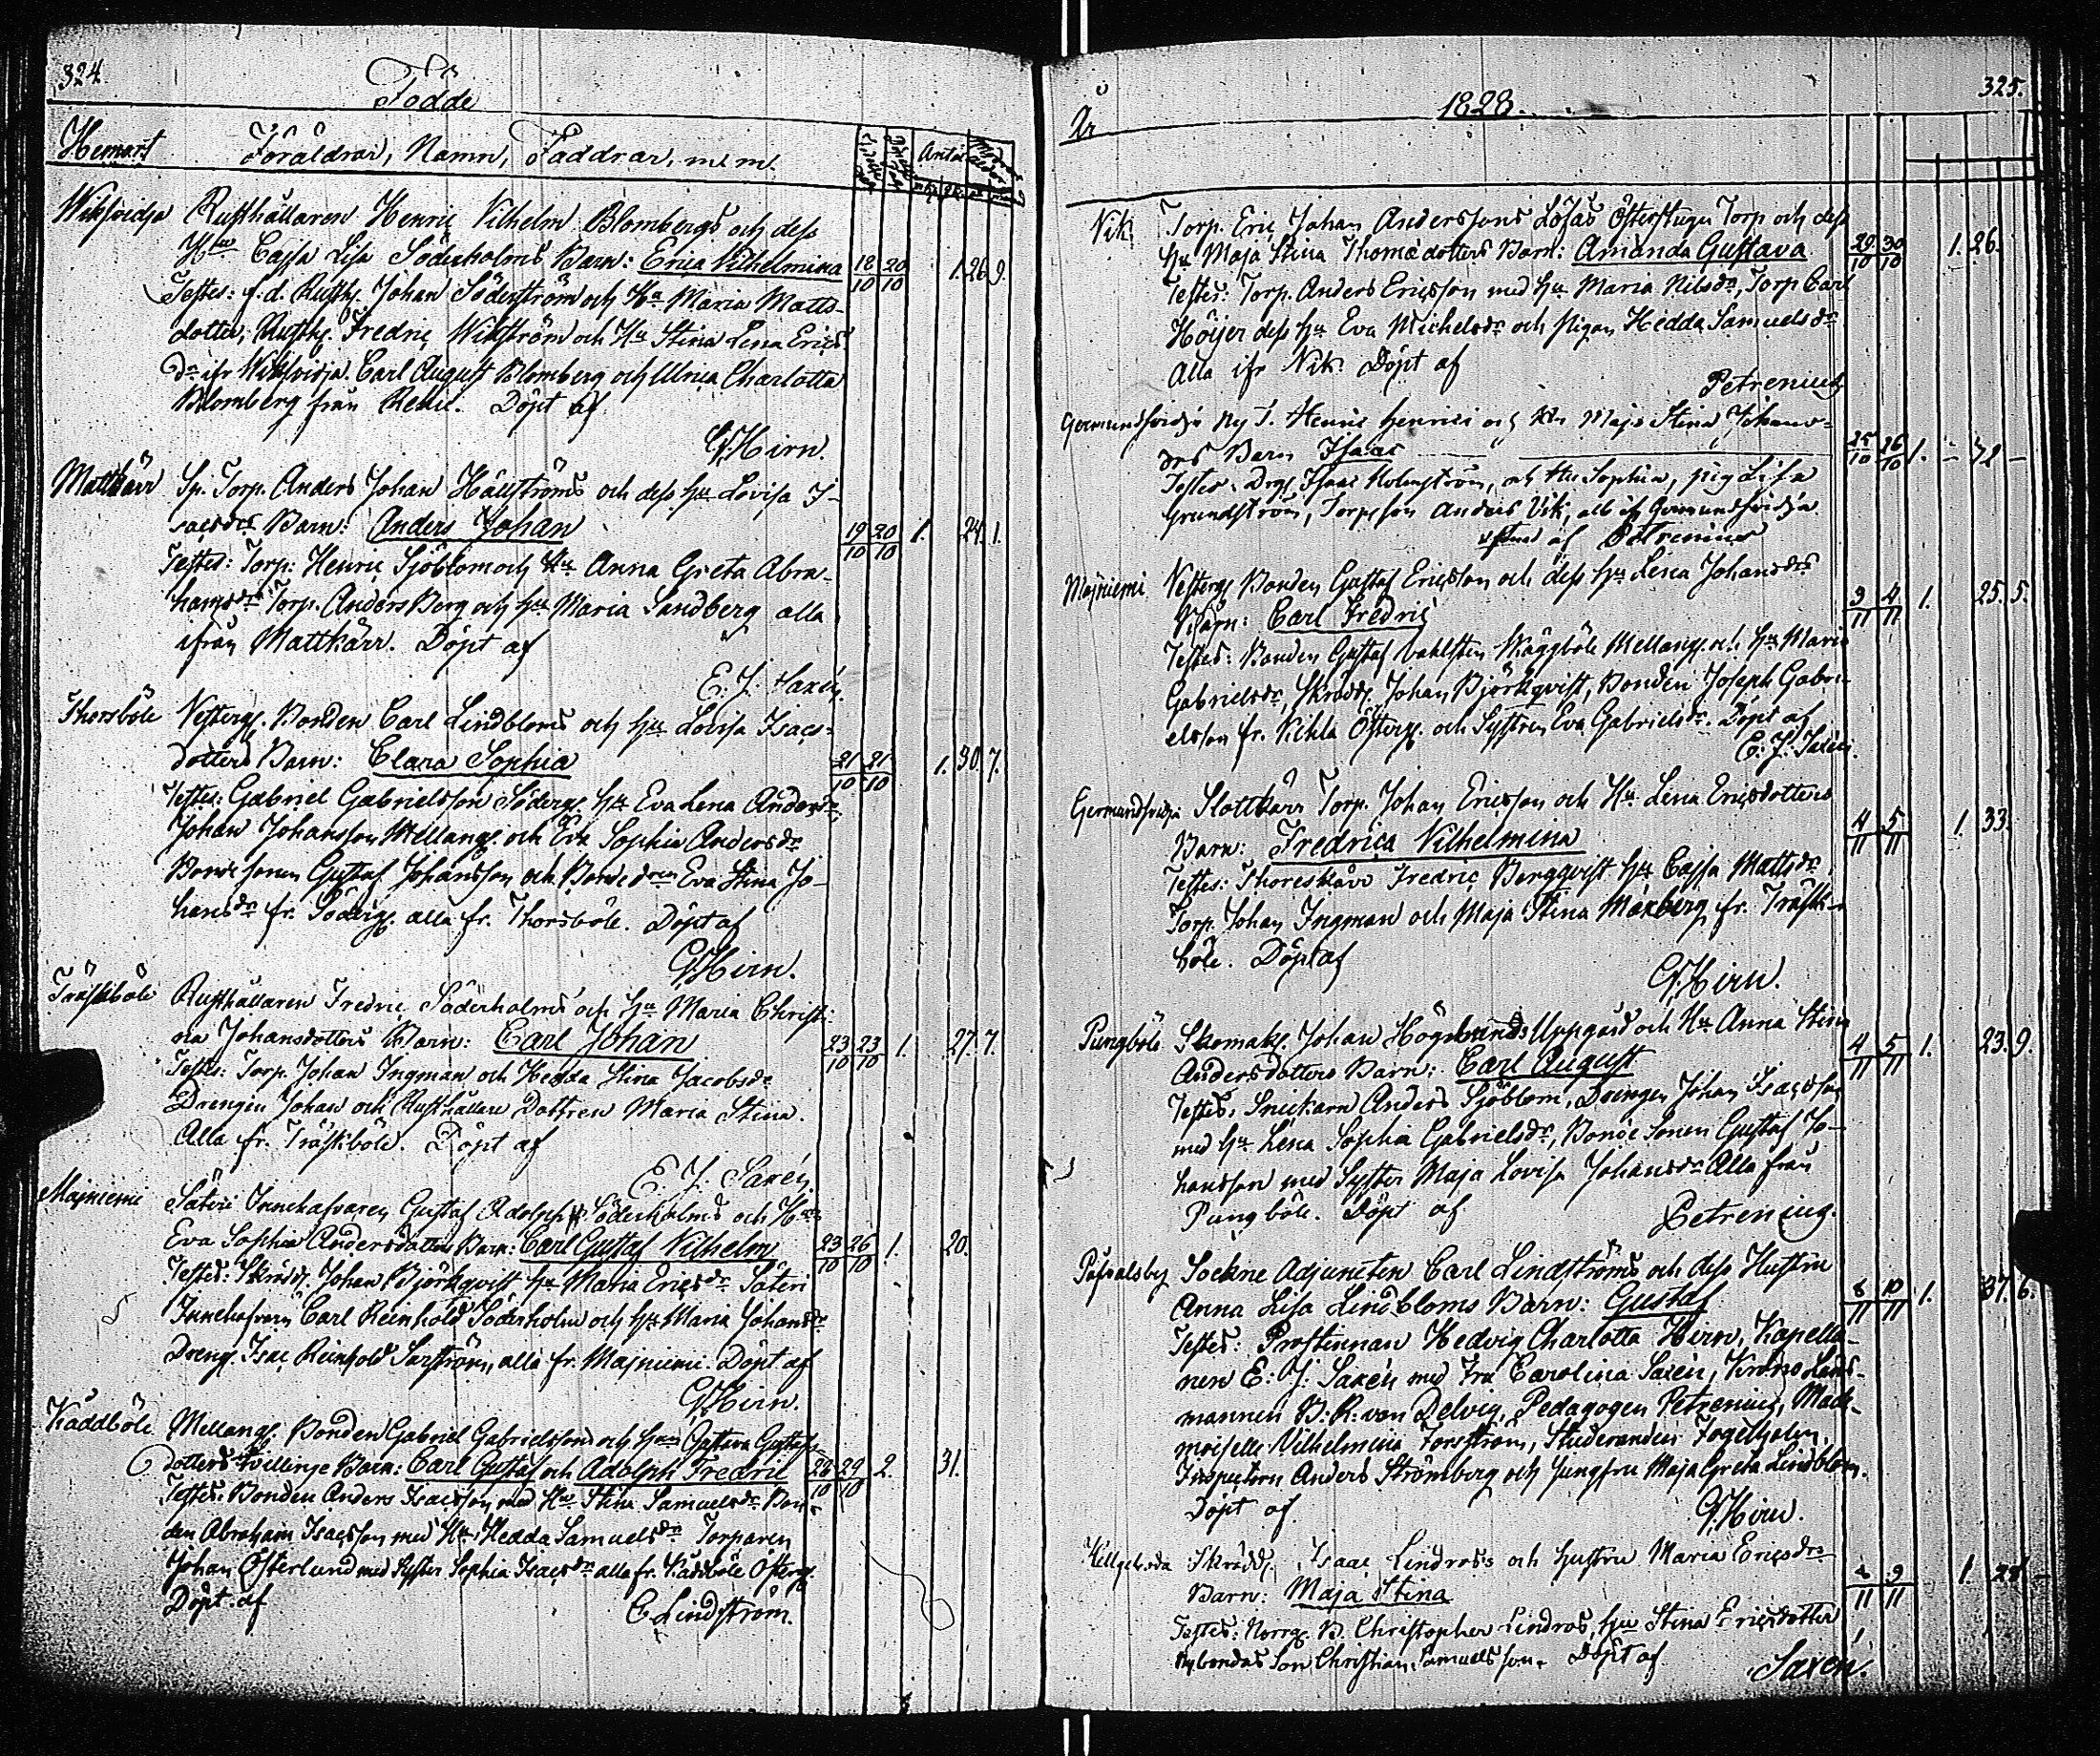 324.
Födde
Hemort Föräldrar, Namn, Faddrar, m. m. Antal
Wiksvidja Rusthållaren Henric Vilhelm Blombergs och dess
Hus Cajsa Lisa Söderholms Barn: Erica Vilhelmina 18/10 20/10 1. 26 9.
Testes: f.d. Rusth. Johan Söderström och Ha Maria Matts-
dotter, Rusthg. Fredric Wikström och Hu Stina Lena Erics
dr ifr Wiksvidja. Carl August Blomberg och Ulrica Charlotta
Blomberg från Döpt af
G. Hirn.
Mattkärr Sp. Torp. Anders Johan Hällströms och dess hu Lovisa I-
sacsdrs Barn: Anders Johan 19/10 20/10 1. 24. 1.
Testes: Torp. Henric Sjöblom och Hu Anna Greta Abra-
hamsdr Torp. Anders Berg och hu Maria Sandberg alla
ifrån Mattkärr. Döpt af
E. J. Saxén.
Thorsböle Vesterg. Bonden Carl Lindbloms och hu Lovisa Isacs-
dotters Barn: Clara Sophia 21/10 21/10 1. 30. 7.
Testes: Gabriel Gabrielsson Söderg. hu Eva Lena Andersdr,
Johan Johansson Mellang. och Eva Sophia Andersdr
Bondesonen Gustaf Johansson och Bondedren Eva Stina Jo-
hansdr fr. Söderg. alla fr. Thorsböle. Döpt af
G. Hirn.
Träskböle Rusthållaren Fredric Söderholms och hu Maria Christi-
na Johansdotters Barn: Carl Johan 23/10 23/10 1. 27. 7.
Testes: Torp. Johan Ingman och Hedda Stina Jacobsdr
Drengen Johan och Rusthållare Dottren Maria Stina.
Alla fr. Träskböle. Döpt af
E. J. Saxén
Majniemi Säteri Innehafvaren Gustaf Adolph Söderholms och Hus
Eva Sophia Andersdotters Barn: Carl Gustaf Vilhelm 23/10 26/10 1. 20.
Testes: Skrädd. Johan Björkqvist hu Maria Ericsdr Säteri
Innehafvern Carl Reinhold Söderholm och hu Maria Johansdr
Dreng. Isac Reinhold alla fr. Majniemi. Döpt af
G. Hirn.
Kaddböle Mellang. Bonden Gabriel Gabrielssons och hus Gustava Gustafs-
dotters tvillinge Barn: Carl Gustaf och Adolph Fredric 28/10 29/10 2. 31.
Testes: Bonden Anders Isacsson med Hu Stina Samuelsdr Bon-
den Abraham Isacsson med Hu Hedda Samuelsdr Torparen
Johan Österlund med Syster Sophia Isacsdr alla fr. Kaddböle Österg.
Döpt af C. Lindström.
325.
År 1828.
Nik Torp. Eric Johan Anderssons Löfås Österstugu Torp och dess
hu Maja Stina Thomædotters Barn: Amanda Gustava 29/10 30/10 1. 26.
Testes: Torp. Anders Ericsson med hu Maria Nilsdr, Torp Carl
Höijer dess hu Eva Michelsdr och pigan Hedda Samuelsdr
alla ifr Nik. Döpt af
Petrenius
Germundsvidja Ny T. Henric Henrici och Hu Maja Stina Johans-
drs Barn Isaac 25/10 26/10 1. – 42 –
Testes. Drg. Isaac Holmström, och Hu Sophia, pig Lisa
Grundström, Torpson Anders Vik, alla ifr Germundsvidja
af Petrenius
Majniemi Vesterg. Bonden Gustaf Ericsson och dess hu Lena Johansdrs
Barn: Carl Fredric 3/11 4/11 1. 25. 5.
Testes: Bonden Gustaf Dahlsten Skäggböle Mellang. och hu Maria
Gabrielsdr, Skrädd. Johan Björkqvist, Bonden Joseph Gabri-
elsson fr. Kichla Österg. och Systren Eva Gabrielsdr. Döpt af
E. J. Saxén.
Germundsvidja Slottkärr Torp. Johan Ericsson och Hu Lena Ericsdotters
Barn: Fredrica Vilhelmina 4/11 5/11 1. 33.
Testes: Thoreskärr Fredric Bergqvist hu Cajsa Mattsdr.
Torp. Johan Ingman och Maja Stina Maxberg fr. Träsk-
böle. Döpt af
G. Hirn.
Pungböle Skomak. Johan Höglunds Uppgård och Hu Anna Stina
Andersdotters Barn: Carl August 4/11 5/11 1. 23. 9.
Testes. Snickarn Anders Sjöblom, Drengen Johan Isacsson
med hu Lena Sophia Gabrielsdr, Bonde Sonen Gustaf Jo-
hansson med Syster Maja Lovisa Johansdr Alla från
Pungböle. Döpt af Petrenius.
Påfvalsby Sockne Adjuncten Carl Lindströms och dess Hustru
Anna Lisa Lindbloms Barn: Gustaf 8/11 10/11 1. 37. 6.
Testes: Prostinnan Hedvig Charlotta Hirn, Kapella-
nen E. J. Saxén med Fru Carolina Saxén, Krono Läns-
mannen B. R. von Delvig, Pedagogen Petrenius, Made-
moiselle Vilhelmina Forsström, Studeranden Fogelholm,
Inspectorn Anders Strömberg och Jungfru Maja Greta Lindblom.
Döpt af G. Hirn.
Helgeboda Skrädd. Isaac Lindross och hustru Maria Ericsdrs
Barn: Maja Stina 9/11 1. 28 –
Testes: Norrg. B. Christopher Lindros, hu Stina Ericsdotter
Nybondas Son Christian Samuelsson. Döpt af Saxén.